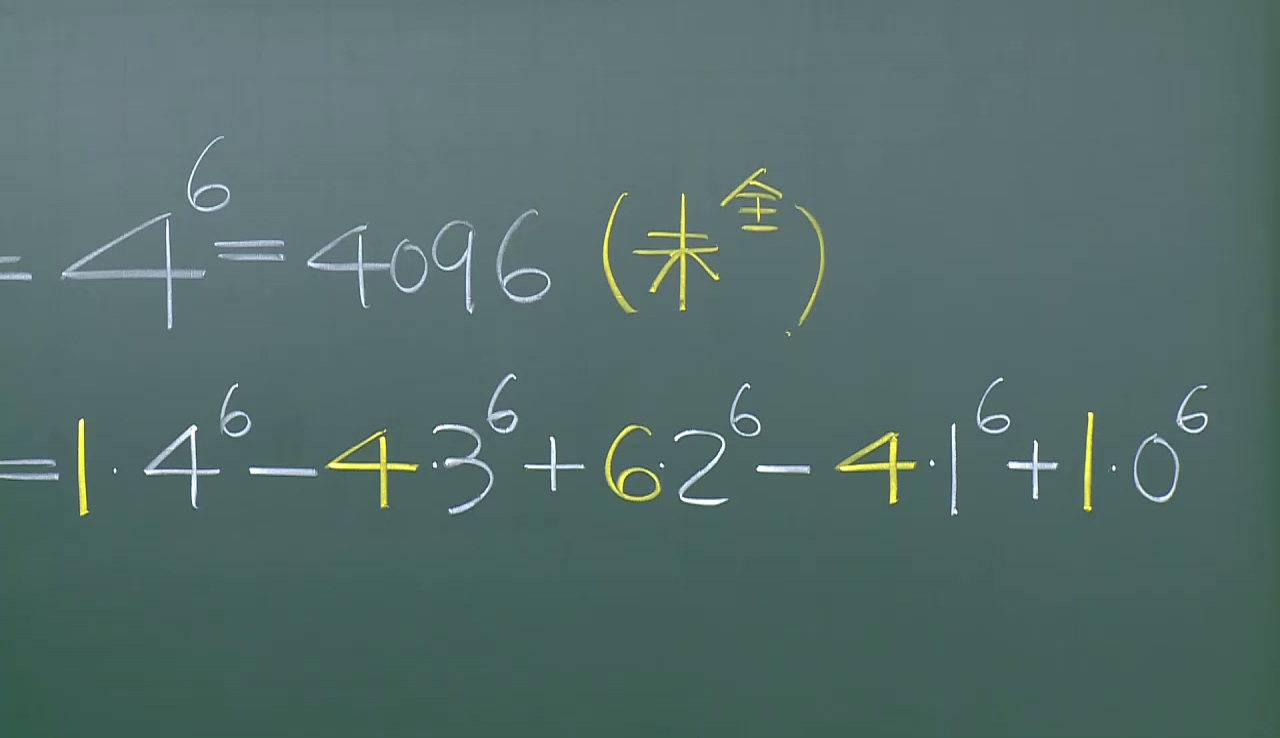 = 4⁶ = 4096 (未全)
= 1·4⁶ - 4·3⁶ + 6·2⁶ - 4·1⁶ + 1·0⁶